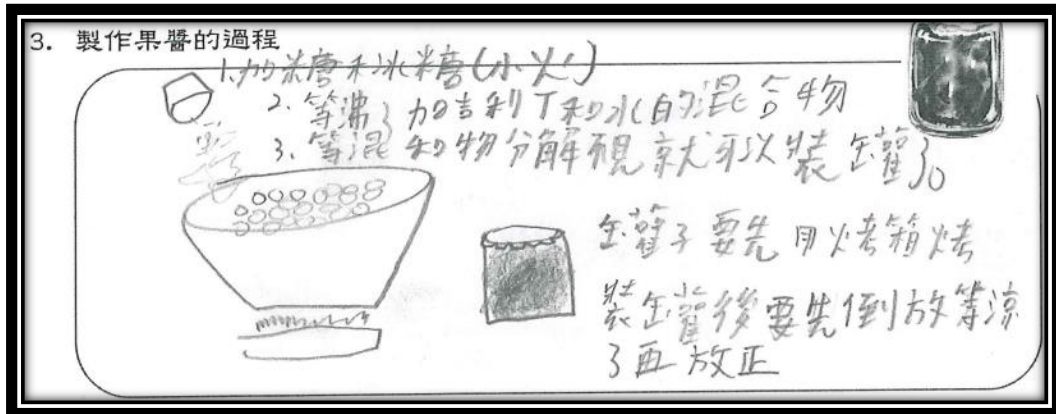 3. 製作果醬的過程
1.加糖和冰糖(小火)
2.等沸了加吉利T和水的混合物
3.等混和物分解視就可以裝罐了。
罐子要先用烤箱烤
裝罐後要先倒放等涼
了再放正